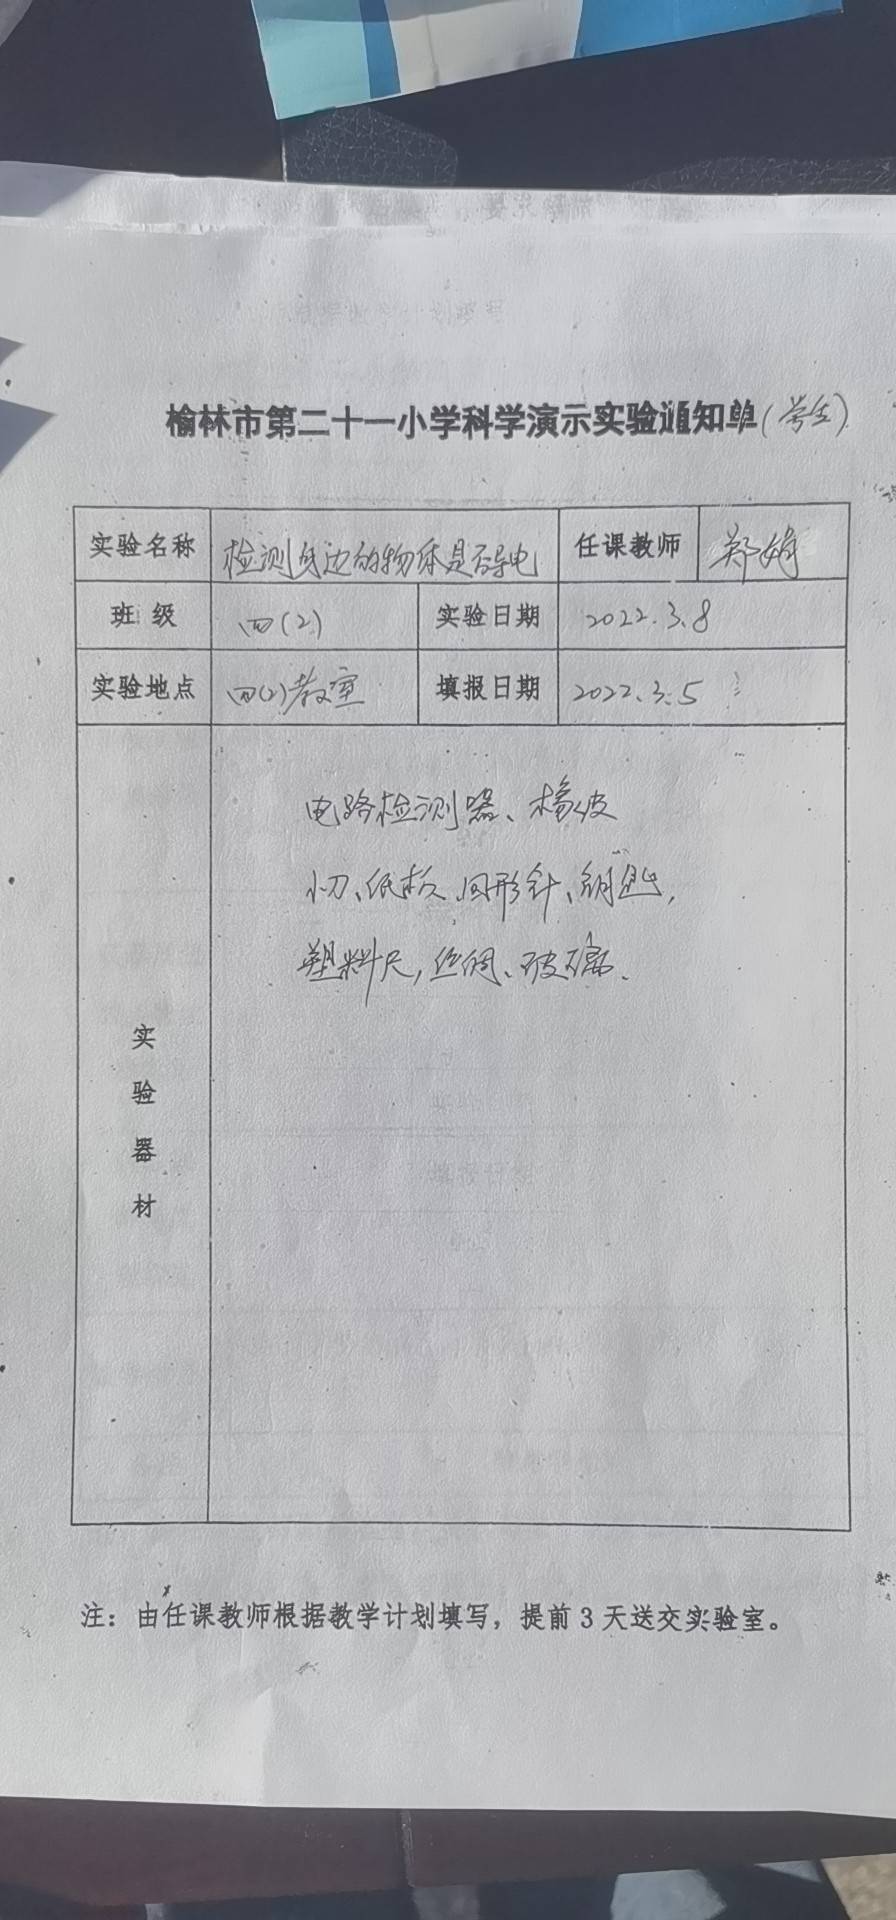 榆林市第二十一小学科学演示实验通知单(学生)
实验名称 检测身边的物体是否导电 任课教师 郑娟
班级 四(2) 实验日期 2022.3.8
实验地点 四(2)教室 填报日期 2022.3.5
实验器材
电路检测器、橡皮
小刀、纸板、回形针、钥匙,
塑料尺,丝绸、玻璃.
注：由任课教师根据教学计划填写，提前3天送交实验室。